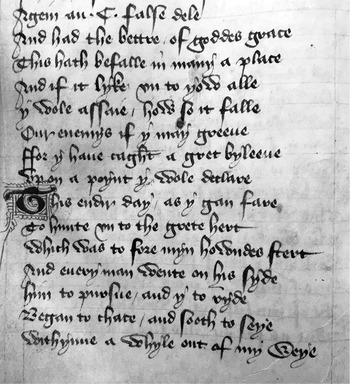 Argem au. C. false dele
And had the bettre, of goddes grace
This hath befalle in many a place
And if it lyke vn to yow alle
y wole assaie, how so it falle
Our enemys if y may greeue
ffor y haue caght a gret byleeue
vpon a poynt y wole declare
This endir day, as y gan fare
To hunte vn to the grete hert
which was to fore myn howndes stert
And euery man wente on his syde
him to pursue, and y to ryde
Began to chace, and sooth to seye
withynne a whyle out of my weye